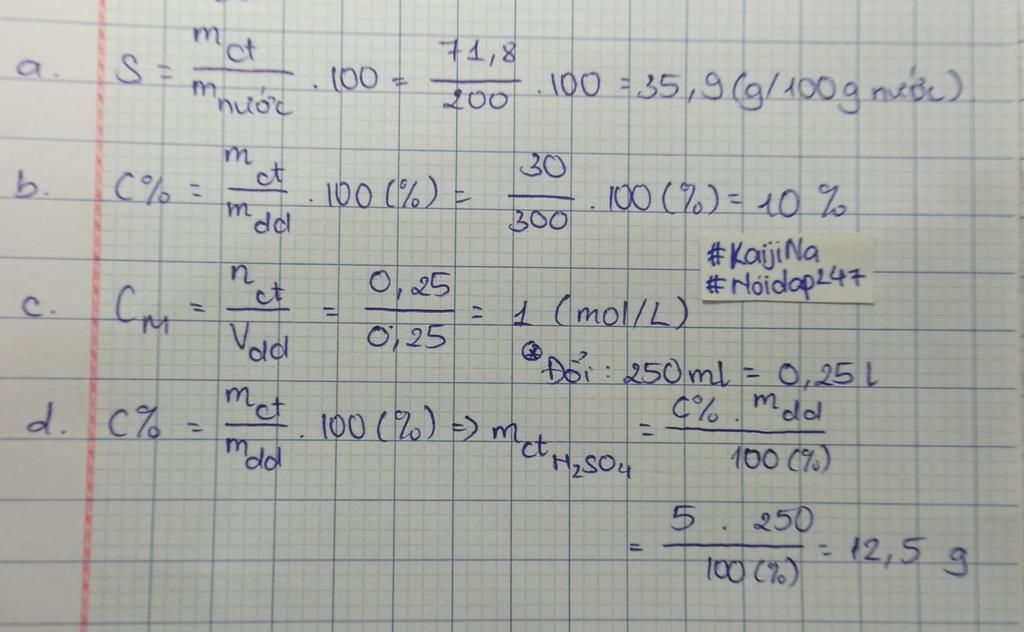 a. S = m_ct / m_nước . 100 = 71,8 / 200 . 100 = 35,9 (g/100g nước)
b. C% = m_ct / m_dd . 100 (%) = 30 / 300 . 100 (%) = 10 %
#KaijiNa
#Hóidap247
c. C_M = n_ct / V_dd = 0,25 / 0,25 = 1 (mol/L)
* Đổi : 250 ml = 0,25 l
d. C% = m_ct / m_dd . 100 (%) => m_ct H₂SO₄ = C% . m_dd / 100 (%)
= 5 . 250 / 100 (%) = 12,5 g